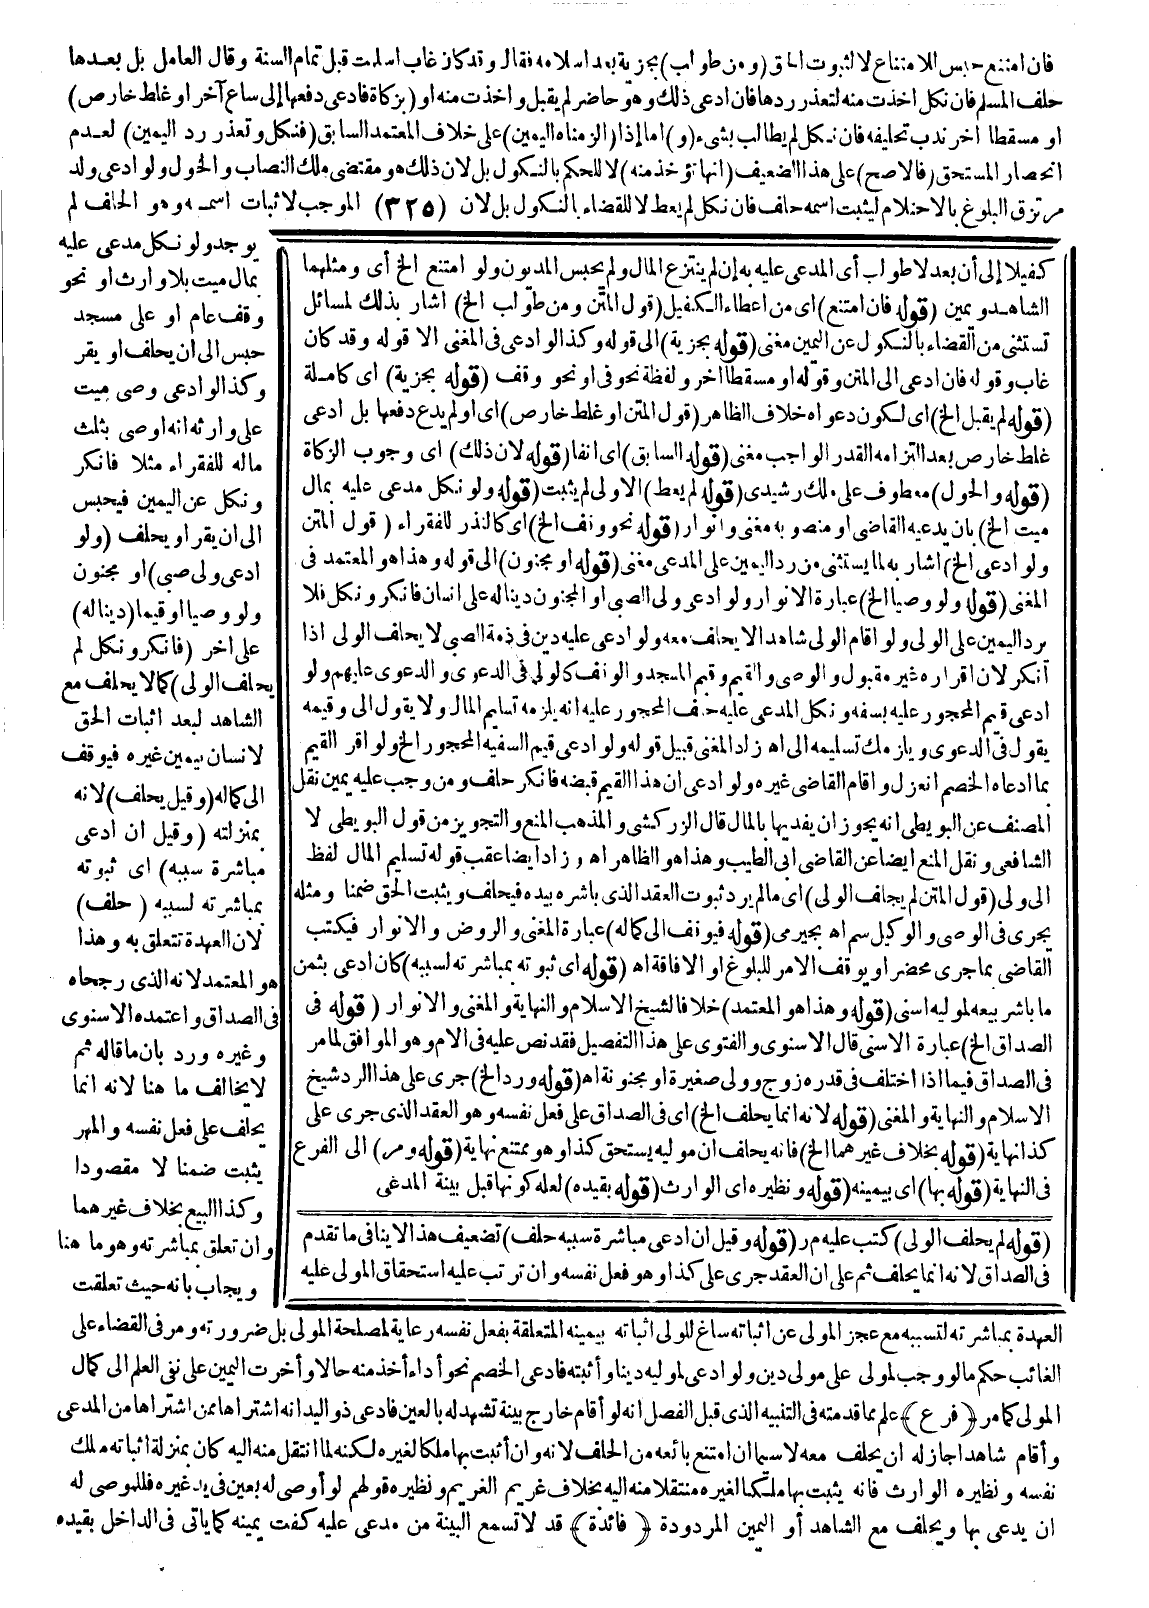 فان امتنع حبس للامتناع لا لثبوت الحق (ومن طولب) بجزية بعد اسلامه فقال وقد كان غاب اسلمت قبل تمام السنة وقال العامل بل بعدها
حلف المسلم فان نكل اخذت منه لتعذر ردها فان ادعى ذلك وهو حاضر لم يقبل واخذت منه او (بزكاة فادعى دفعها إلى ساع آخر او غلط خارص)
او مسقطا اخر ندب تحليفه فان نكل لم يطالب بشىء (و) اما إذا (الزمناه اليمين) على خلاف المعتمد السابق (فنكل وتعذر رد اليمين) لعدم
انحصار المستحق (فالاصح) على هذا الضعيف (انها تؤخذ منه) لا للحكم بالنكول بل لان ذلك هو مقتضى ملك النصاب والحول ولو ادعى ولد
مرتزق البلوغ بالاحتلام ليثبت اسمه حلف فان نكل لم يعط لا للقضاء بالنكول بل لان (٣٢٥) الموجب لاثبات اسمه وهو الحلف لم
يوجد ولو نكل مدعى عليه
بمال ميت بلا وارث او نحو
وقف عام او على مسجد
حبس الى ان يحلف او يقر
وكذا لو ادعى وصى ميت
على وارثه انه اوصى بثلث
ماله للفقراء مثلا فانكر
ونكل عن اليمين فيحبس
الى ان يقر او يحلف (ولو
ادعى ولى صبى) او مجنون
ولو وصيا او قيما (دينا له)
على اخر (فانكر ونكل لم
يحلف الولى) كما لا يحلف مع
الشاهد لبعد اثبات الحق
لانسان بيمين غيره فيوقف
الى كماله (وقيل يحلف) لانه
بمنزلته (وقيل ان ادعى
مباشرة سببه) اى ثبوته
بمباشرته لسببه (حلف)
لان العهدة تتعلق به وهذا
هو المعتمد لانه الذى رجحاه
فى الصداق واعتمده الاسنوى
وغيره ورد بان ما قاله ثم
لا يخالف ما هنا لانه انما
يحلف على فعل نفسه والمهر
يثبت ضمنا لا مقصودا
وكذا البيع بخلاف غيرهما
وان تعلق بمباشرته وهو ما هنا
ويجاب بانه حيث تعلقت
كفيلا إلى أن بعد لا طولب أى المدعى عليه به إن لم ينتزع المال ولم يحبس المديون ولو امتنع الخ أى ومثلهما
الشاهد ويمين (قوله فان امتنع) اى من اعطاء الكفيل (قول المتن ومن طولب الخ) اشار بذلك لمسائل
تستثنى من القضاء بالنكول عن اليمين مغنى (قوله بجزية) الى قوله وكذا لو ادعى فى المغنى الا قوله وقد كان
غاب وقوله فان ادعى الى المتن وقوله او مسقطا اخر ولفظة نحو فى او نحو وقف (قوله بجزية) اى كاملة
(قوله لم يقبل الخ) اى لكون دعواه خلاف الظاهر (قول المتن او غلط خارص) اى او لم يدع دفعها بل ادعى
غلط خارص بعد التزامه القدر الواجب مغنى (قوله السابق) اى انفا (قوله لان ذلك) اى وجوب الزكاة
(قوله والحول) معطوف على ملك رشيدى (قوله لم يعط) الاولى لم يثبت (قوله ولو نكل مدعى عليه بمال
ميت الخ) بان يدعيه القاضى او منصوبه مغنى وانوار (قوله نحو وقف الخ) اى كالنذر للفقراء (قول المتن
ولو ادعى الخ) اشار به لما يستثنى من رد اليمين على المدعى مغنى (قوله او مجنون) الى قوله وهذا هو المعتمد فى
المغنى (قوله ولو وصيا الخ) عبارة الانوار ولو ادعى ولى الصبى او المجنون دينا له على انسان فانكر ونكل فلا
يرد اليمين على الولى ولو اقام الولى شاهدا لا يحلف معه ولو ادعى عليه دين فى ذمة الصبى لا يحلف الولى اذا
أنكر لان اقراره غير مقبول والوصى والقيم وقيم المسجد والوقف كالولى فى الدعوى والدعوى عليهم ولو
ادعى قيم المحجور عليه بسفه ونكل المدعى عليه حلف المحجور عليه انه يلزمه تسليم المال ولا يقول الى وقيمه
يقول فى الدعوى ويلزمك تسليمه الى اه زاد المغنى قبيل قوله ولو ادعى قيم السفيه المحجور الخ ولو اقر القيم
بما ادعاه الخصم انعزل واقام القاضى غيره ولو ادعى ان هذا القيم قبضه فانكر حلف ومن وجب عليه يمين نقل
المصنف عن البويطى انه يجوز ان يفديها بالمال قال الزركشى والمذهب المنع والتجويز من قول البويطى لا
الشافعى ونقل المنع ايضا عن القاضى ابى الطيب وهذا هو الظاهر اه وزاد ايضا عقب قوله تسليم المال لفظ
الى ولى (قول المتن لم يحلف الولى) اى ما لم يرد ثبوت العقد الذى باشره بيده فيحلف ويثبت الحق ضمنا ومثله
يجرى فى الوصى والوكيل سم اه بجيرمى (قوله فيوقف الى كماله) عبارة المغنى والروض والانوار فيكتب
القاضى بما جرى محضر او يوقف الامر للبلوغ او الافاقة اه (قوله اى ثبوته بمباشرته لسببه) كان ادعى بثمن
ما باشر بيعه لموليه اسنى (قوله وهذا هو المعتمد) خلافا لشيخ الاسلام والنهاية والمغنى والانوار (قوله فى
الصداق الخ) عبارة الاسنى قال الاسنوى والفتوى على هذا التفصيل فقد نص عليه فى الام وهو الموافق لما مر
فى الصداق فيما اذا اختلف فى قدره زوج وولى صغيرة او مجنونة اه (قوله ورد الخ) جرى على هذا الرد شيخ
الاسلام والنهاية والمغنى (قوله لانه انما يحلف الخ) اى فى الصداق على فعل نفسه وهو العقد الذى جرى على
كذا نهاية (قوله بخلاف غيرهما الخ) فانه يحلف ان موليه يستحق كذا وهو ممتنع نهاية (قوله ومر) الى الفرع
فى النهاية (قوله بها) اى بيمينه (قوله ونظيره اى الوارث (قوله بقيده) لعله كونها قبل بينة المدعى
(قوله لم يحلف الولى) كتب عليه م ر (قوله وقيل ان ادعى مباشرة سببه حلف) تضعيف هذا لا ينافى ما تقدم
فى الصداق لانه انما يحلف ثم على ان العقد جرى على كذا وهو فعل نفسه وان ترتب عليه استحقاق المولى عليه
العهدة بمباشرته لتسببه مع عجز المولى عن اثباته ساغ للولى اثباته بيمينه المتعلقة بفعل نفسه رعاية لمصلحة المولى بل ضرورته ومر فى القضاء على
الغائب حكم ما لو وجب لمولى على مولى دين ولو ادعى لموليه دينا وأثبته فادعى الخصم نحو أداء أخذ منه حالا وأخرت اليمين على نفى العلم الى كمال
المولى كما مر (فرع) علم مما قدمته فى التنبيه الذى قبل الفصل انه لو أقام خارج بينة تشهد له بالعين فادعى ذو اليد انه اشتراها ممن اشتراها من المدعى
وأقام شاهدا جاز له ان يحلف معه لا سيما ان امتنع بائعه من الحلف لانه وان أثبت بها ملكا لغيره لكنه لما انتقل منه اليه كان بمنزلة اثباته ملك
نفسه ونظيره الوارث فانه يثبت بها ملكا لغيره منتقلا منه اليه بخلاف غريم الغريم ونظيره قولهم لو أوصى له بعين فى يد غيره فللموصى له
ان يدعى بها ويحلف مع الشاهد أو اليمين المردودة (فائدة) قد لا تسمع البينة من مدعى عليه كفت يمينه كما يأتى فى الداخل بقيده